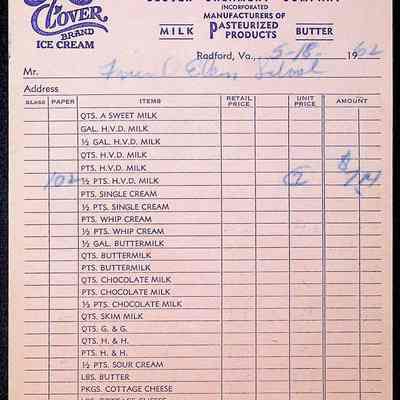 CLOVER
BRAND
ICE CREAM
INCORPORATED
MANUFACTURERS OF
MILK PASTEURIZED PRODUCTS BUTTER
Radford, Va., 5-18- 1962
Mr. Elem School
Address
GLASS PAPER ITEMS RETAIL PRICE UNIT PRICE AMOUNT
QTS. A SWEET MILK
GAL. H.V.D. MILK
½ GAL. H.V.D. MILK
QTS. H.V.D. MILK
PTS. H.V.D. MILK $
102 ½ PTS. H.V.D. MILK
PTS. SINGLE CREAM
½ PTS. SINGLE CREAM
PTS. WHIP CREAM
½ PTS. WHIP CREAM
½ GAL. BUTTERMILK
QTS. BUTTERMILK
PTS. BUTTERMILK
QTS. CHOCOLATE MILK
PTS. CHOCOLATE MILK
½ PTS. CHOCOLATE MILK
QTS. SKIM MILK
QTS. G. & G.
QTS. H. & H.
PTS. H. & H.
½ PTS. SOUR CREAM
LBS. BUTTER
PKGS. COTTAGE CHEESE
LBS. COTTAGE CHEESE